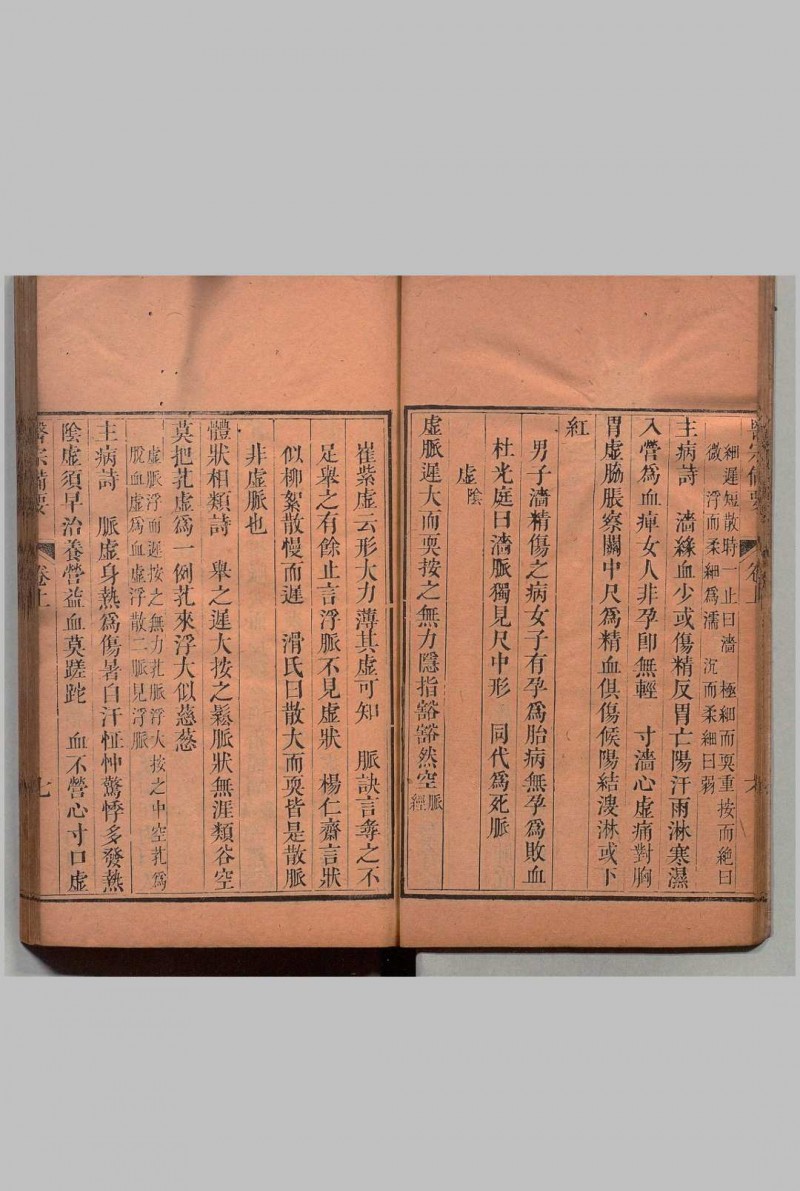 細遲短散時一止曰濇　極細而耎重按而絕曰
微　浮而柔細爲濡　沉而柔細曰弱
主病詩　濇緣血少或傷精反胃亡陽汗雨淋寒濕
入營爲血痺女人非孕卽無經　寸濇心虛痛對胸
胃虛脇脹察關中尺爲精血俱傷候腸結溲淋或下
紅
男子濇精傷之病女子有孕爲胎病無孕爲敗血
杜光庭曰濇脈獨見尺中形　同代爲死脈
虛陰
虛脈遲大而耎按之無力隱指豁豁然空脈
經
崔紫虛云形大力薄其虛可知　脈訣言尋之不
足舉之有餘止言浮脈不見虛狀　楊仁齋言狀
似柳絮散慢而遲　滑氏曰散大而耎皆是散脈
非虛脈也
體狀相類詩　舉之遲大按之鬆脈狀無涯類谷空
莫把芤虛爲一例芤來浮大似慈葱
虛脈浮而遲按之無力芤脈浮大按之中空芤爲
脫血虛爲血虛浮散二脈見浮脈
主病詩　脈虛身熱爲傷暑自汗怔忡驚悸多發熱
陰虛須早治養營益血莫蹉跎　血不營心寸口虛
醫宗備要
卷上
七